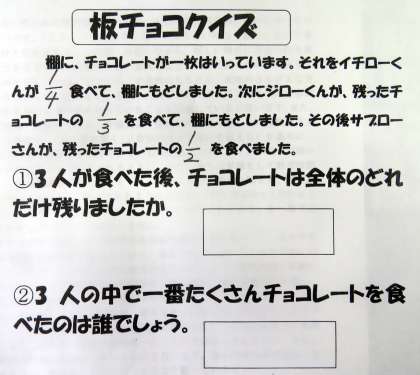 板チョコクイズ
棚に、チョコレートが一枚はいっています。それをイチローく
んが 1/4 食べて、棚にもどしました。次にジローくんが、残ったチ
ョコレートの 1/3 を食べて、棚にもどしました。その後サブロー
さんが、残ったチョコレートの 1/2 を食べました。
①3人が食べた後、チョコレートは全体のどれ
だけ残りましたか。
②3 人の中で一番たくさんチョコレートを食
べたのは誰でしょう。